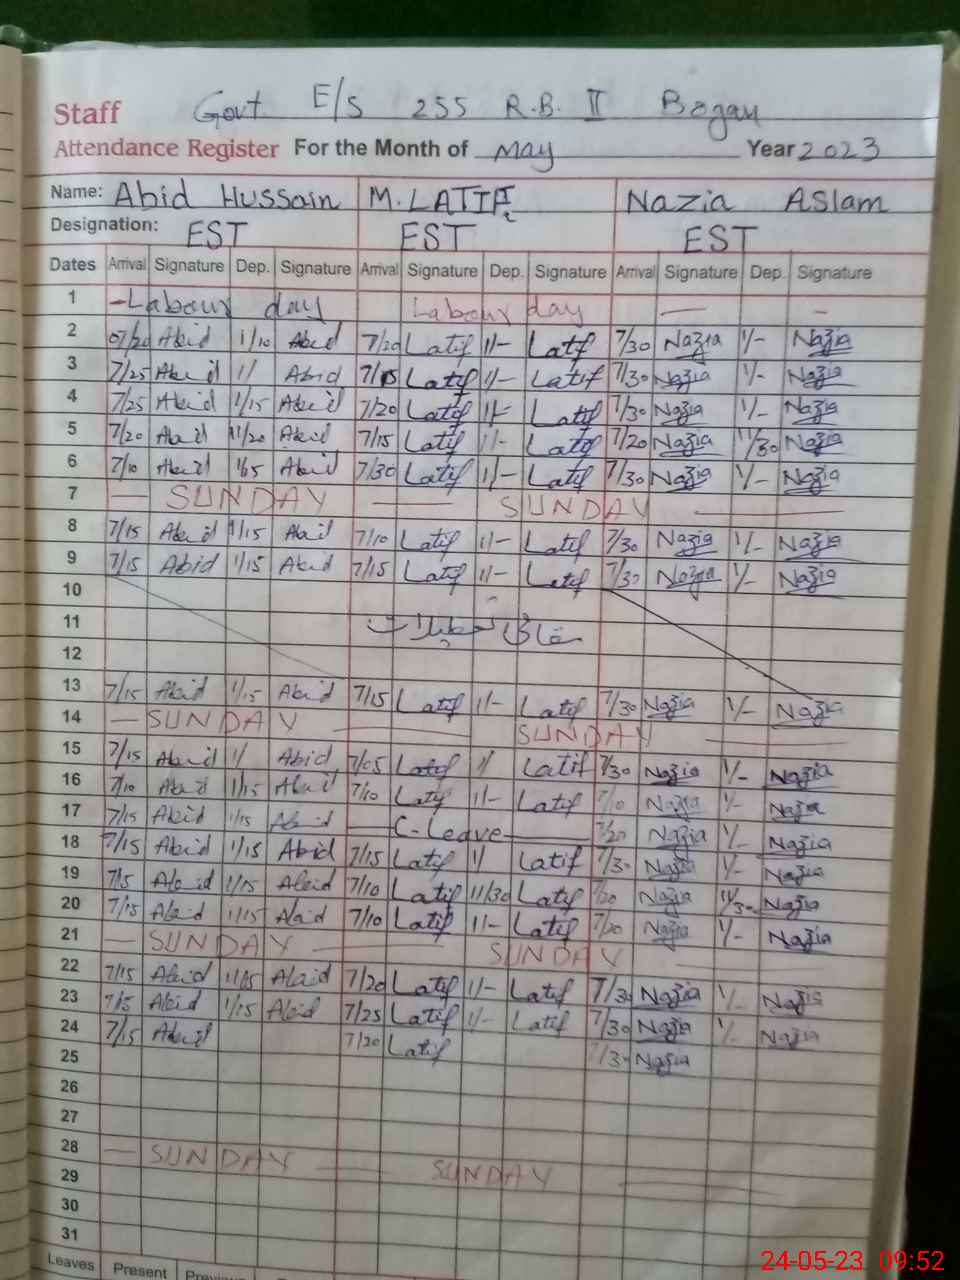 Staff Govt E/S 255 R.B. II Bogan
Attendance Register For the Month of May Year 2023
Name: Abid Hussain M. LATIF Nazia Aslam
Designation: EST EST EST
Dates Arrival Signature Dep. Signature Arrival Signature Dep. Signature Arrival Signature Dep. Signature
1 - Labour day Labour day — -
2 07/20 Abid 1/10 Abid 7/20 Latif 1/- Latif 7/30 Nazia 1/- Nazia
3 7/25 Abid 1/ Abid 7/15 Latif 1/- Latif 7/30 Nazia 1/- Nazia
4 7/25 Abid 1/15 Abid 7/20 Latif 1/- Latif 7/30 Nazia 1/- Nazia
5 7/20 Abid 11/20 Abid 7/15 Latif 11- Latif 7/20 Nazia 11/30 Nazia
6 7/10 Abid 1/15 Abid 7/30 Latif 1/- Latif 7/30 Nazia 1/- Nazia
7 — SUNDAY — SUNDAY —
8 7/15 Abid 1/15 Abid 7/10 Latif 1/- Latif 7/30 Nazia 1/- Nazia
9 7/15 Abid 1/15 Abid 7/15 Latif 1/- Latif 7/30 Nazia 1/- Nazia
10
11 مقامی تعطیلات
12
13 7/15 Abid 1/15 Abid 7/15 Latif 1/- Latif 7/30 Nazia 1/- Nazia
14 — SUNDAY — SUNDAY —
15 7/15 Abid 1/ Abid 7/05 Latif 1/ Latif 7/30 Nazia 1/- Nazia
16 7/10 Abid 1/15 Abid 7/10 Latif 1/- Latif 7/10 Nazia 1/- Nazia
17 7/15 Abid 1/15 Abid — C-Leave — 7/20 Nazia 1/- Nazia
18 7/15 Abid 1/15 Abid 7/15 Latif 1/ Latif 7/30 Nazia 1/- Nazia
19 7/15 Abid 1/15 Abid 7/10 Latif 11/30 Latif 7/20 Nazia 11/30 Nazia
20 7/15 Abid 1/15 Abid 7/10 Latif 1/- Latif 7/20 Nazia 1/- Nazia
21 — SUNDAY — SUNDAY
22 7/15 Abid 1/15 Abid 7/20 Latif 1/- Latif 7/30 Nazia 1/- Nazia
23 7/15 Abid 1/15 Abid 7/25 Latif 1/- Latif 7/30 Nazia 1/- Nazia
24 7/15 Abid 7/20 Latif 7/30 Nazia
25
26
27
28 — SUNDAY — SUNDAY —
29
30
31
Leaves Present
24-05-23 09:52